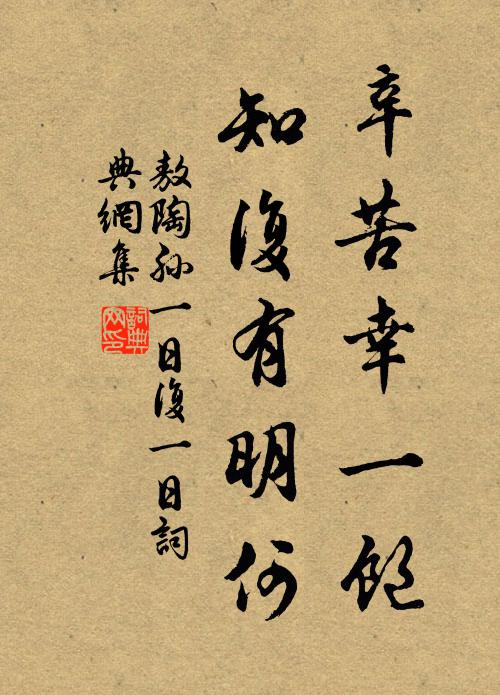 辛苦幸一飽
知復有明何
敖陶孙一日復一日詞
典網集
詞典网印